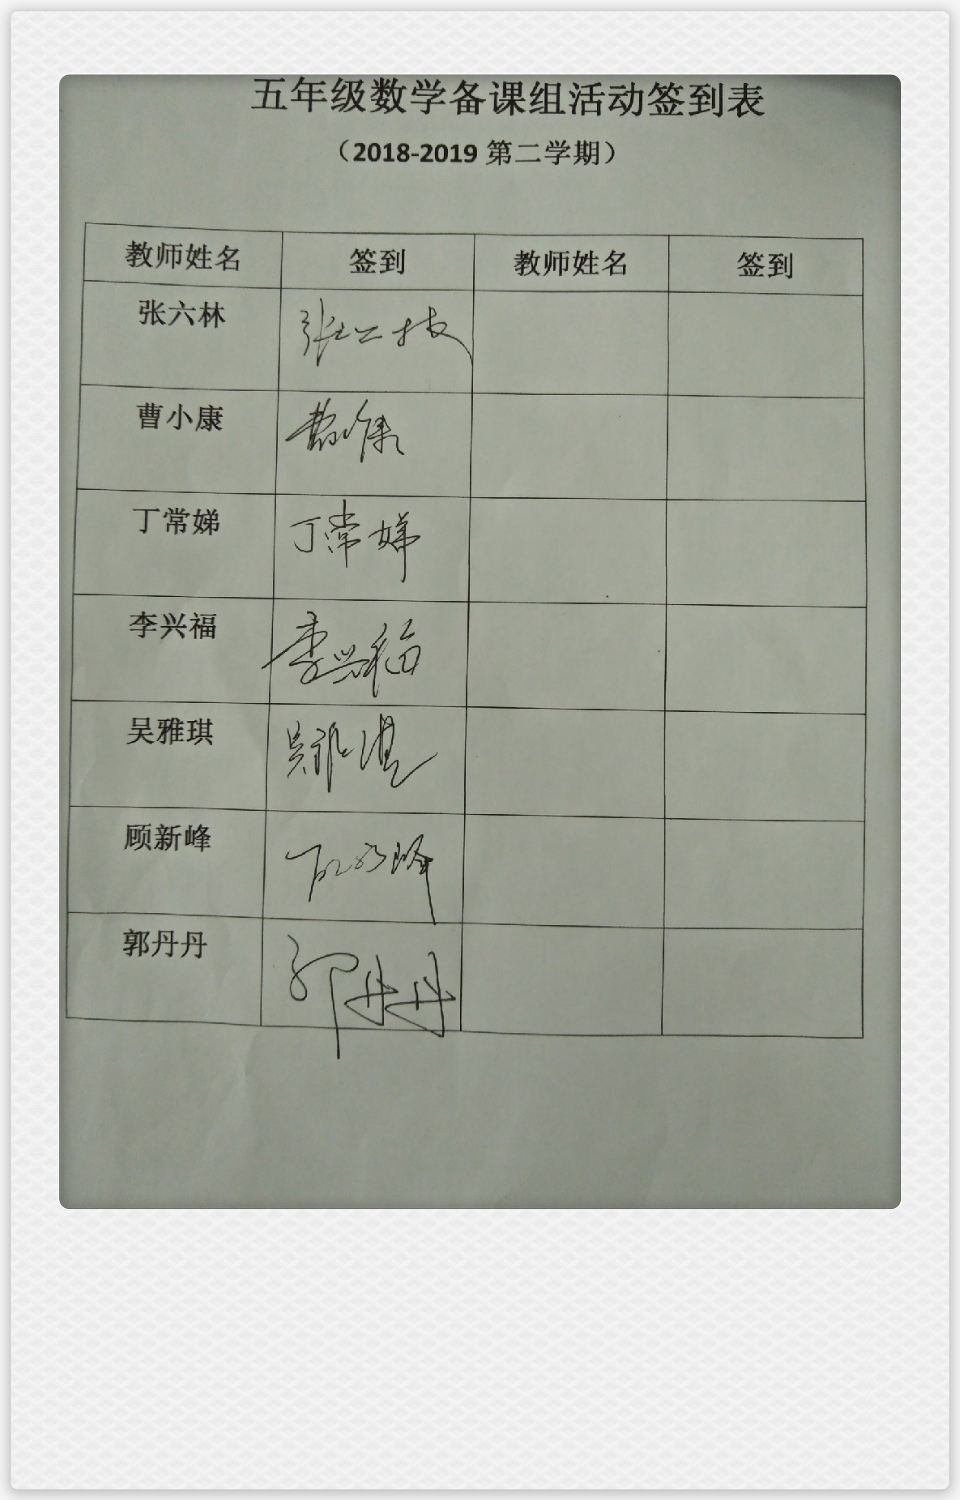 五年级数学备课组活动签到表
（2018-2019 第二学期）
教师姓名 签到 教师姓名 签到
张六林
曹小康 曹小康
丁常娣 丁常娣
李兴福 李兴福
吴雅琪 吴雅琪
顾新峰 顾新峰
郭丹丹 郭丹丹